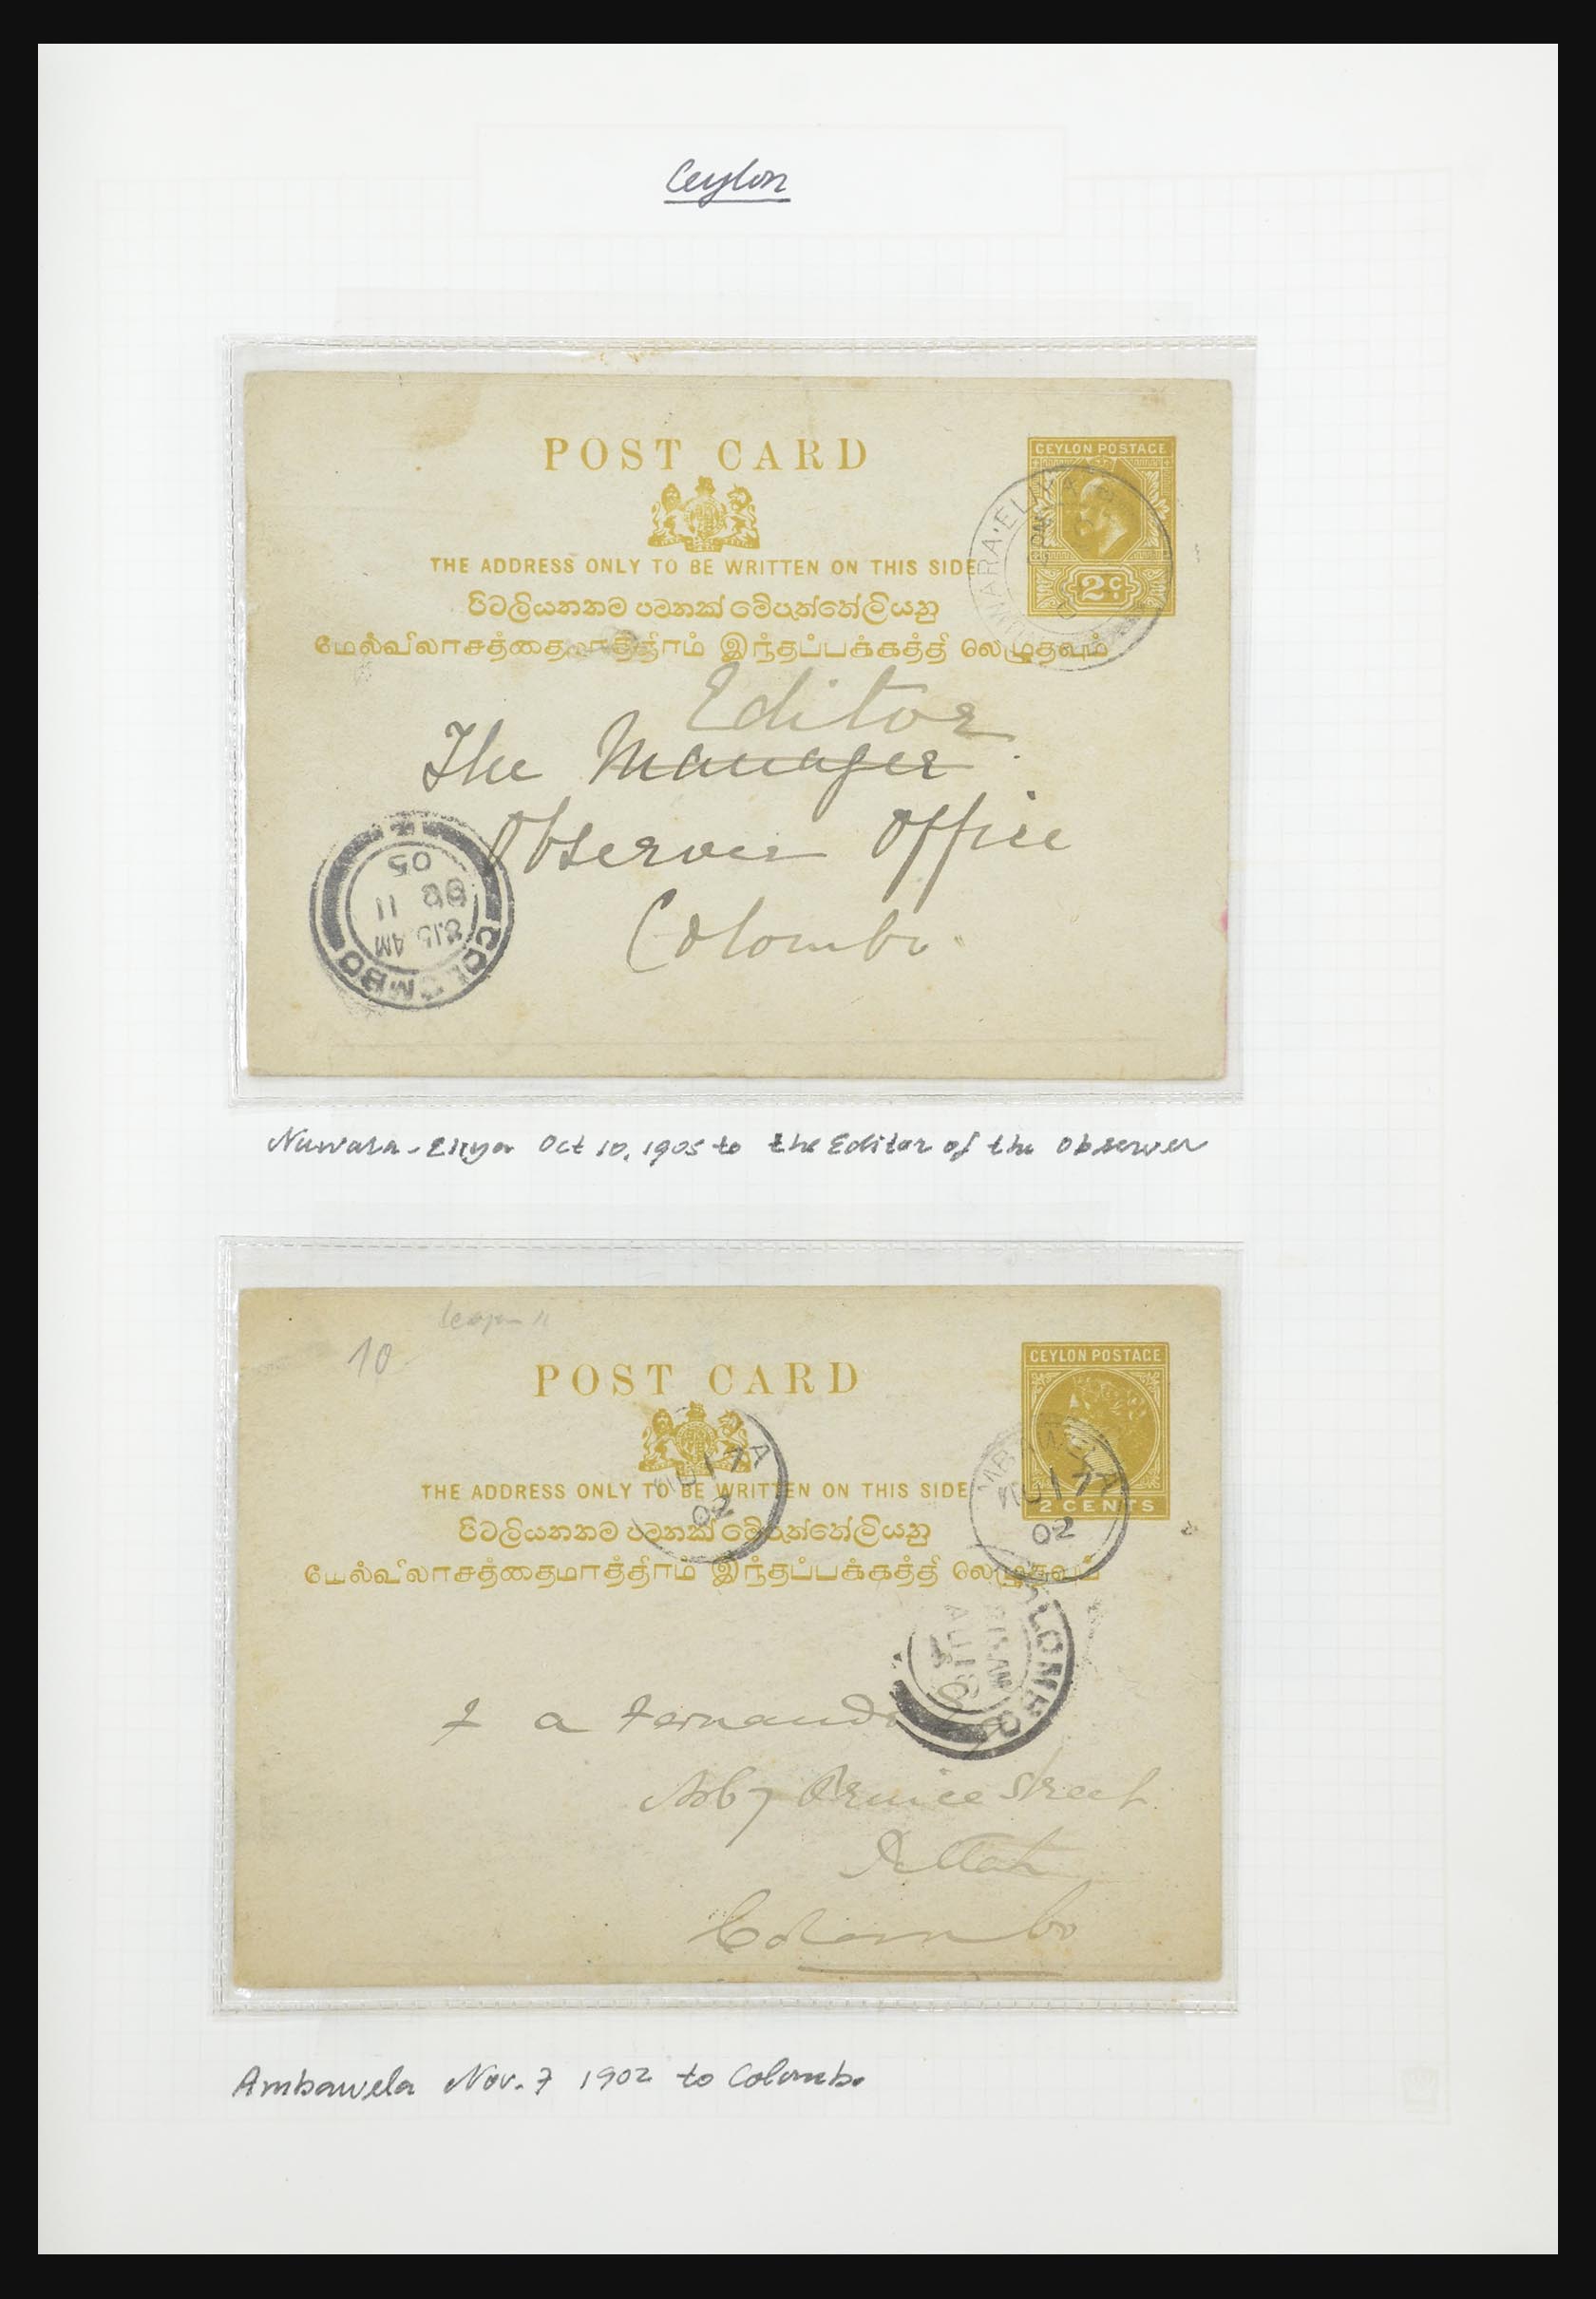 Ceylon
POST CARD
CEYLON POSTAGE
2c
THE ADDRESS ONLY TO BE WRITTEN ON THIS SIDE
மேல்விலாசத்தைமாத்திரம் இந்தப்பக்கத்தி லெழுதவும்
Editor
The Manager
Observer Office
Colombo.
COLOMBO
8.15 AM
11
05
Nuwara-Eliya Oct 10, 1905 to the Editor of the Observer
10
POST CARD
CEYLON POSTAGE
2 CENTS
THE ADDRESS ONLY TO BE WRITTEN ON THIS SIDE
மேல்விலாசத்தைமாத்திரம் இந்தப்பக்கத்தி லெழுதவும்
AU 17
02
AU 17
02
COLOMBO
a Fernando
Street
Colombo
Ambawela Nov. 7 1902 to Colombo